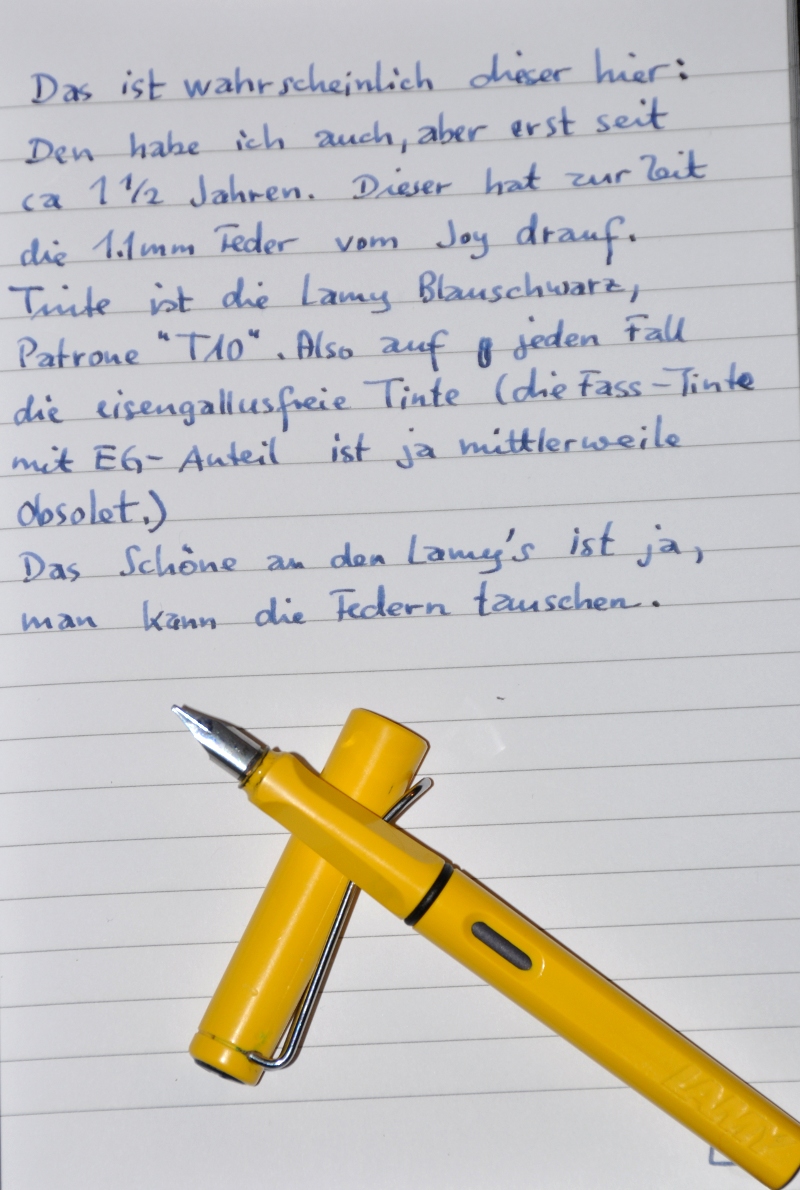 Das ist wahrscheinlich dieser hier:
Den habe ich auch, aber erst seit
ca 1 1/2 Jahren. Dieser hat zur Zeit
die 1.1mm Feder vom Joy drauf.
Tinte ist die Lamy Blauschwarz,
Patrone "T10". Also auf jeden Fall
die eisengallusfreie Tinte (die Fass-Tinte
mit EG-Anteil ist ja mittlerweile
obsolet.)
Das Schöne an den Lamy's ist ja,
man kann die Federn tauschen.
LAMY